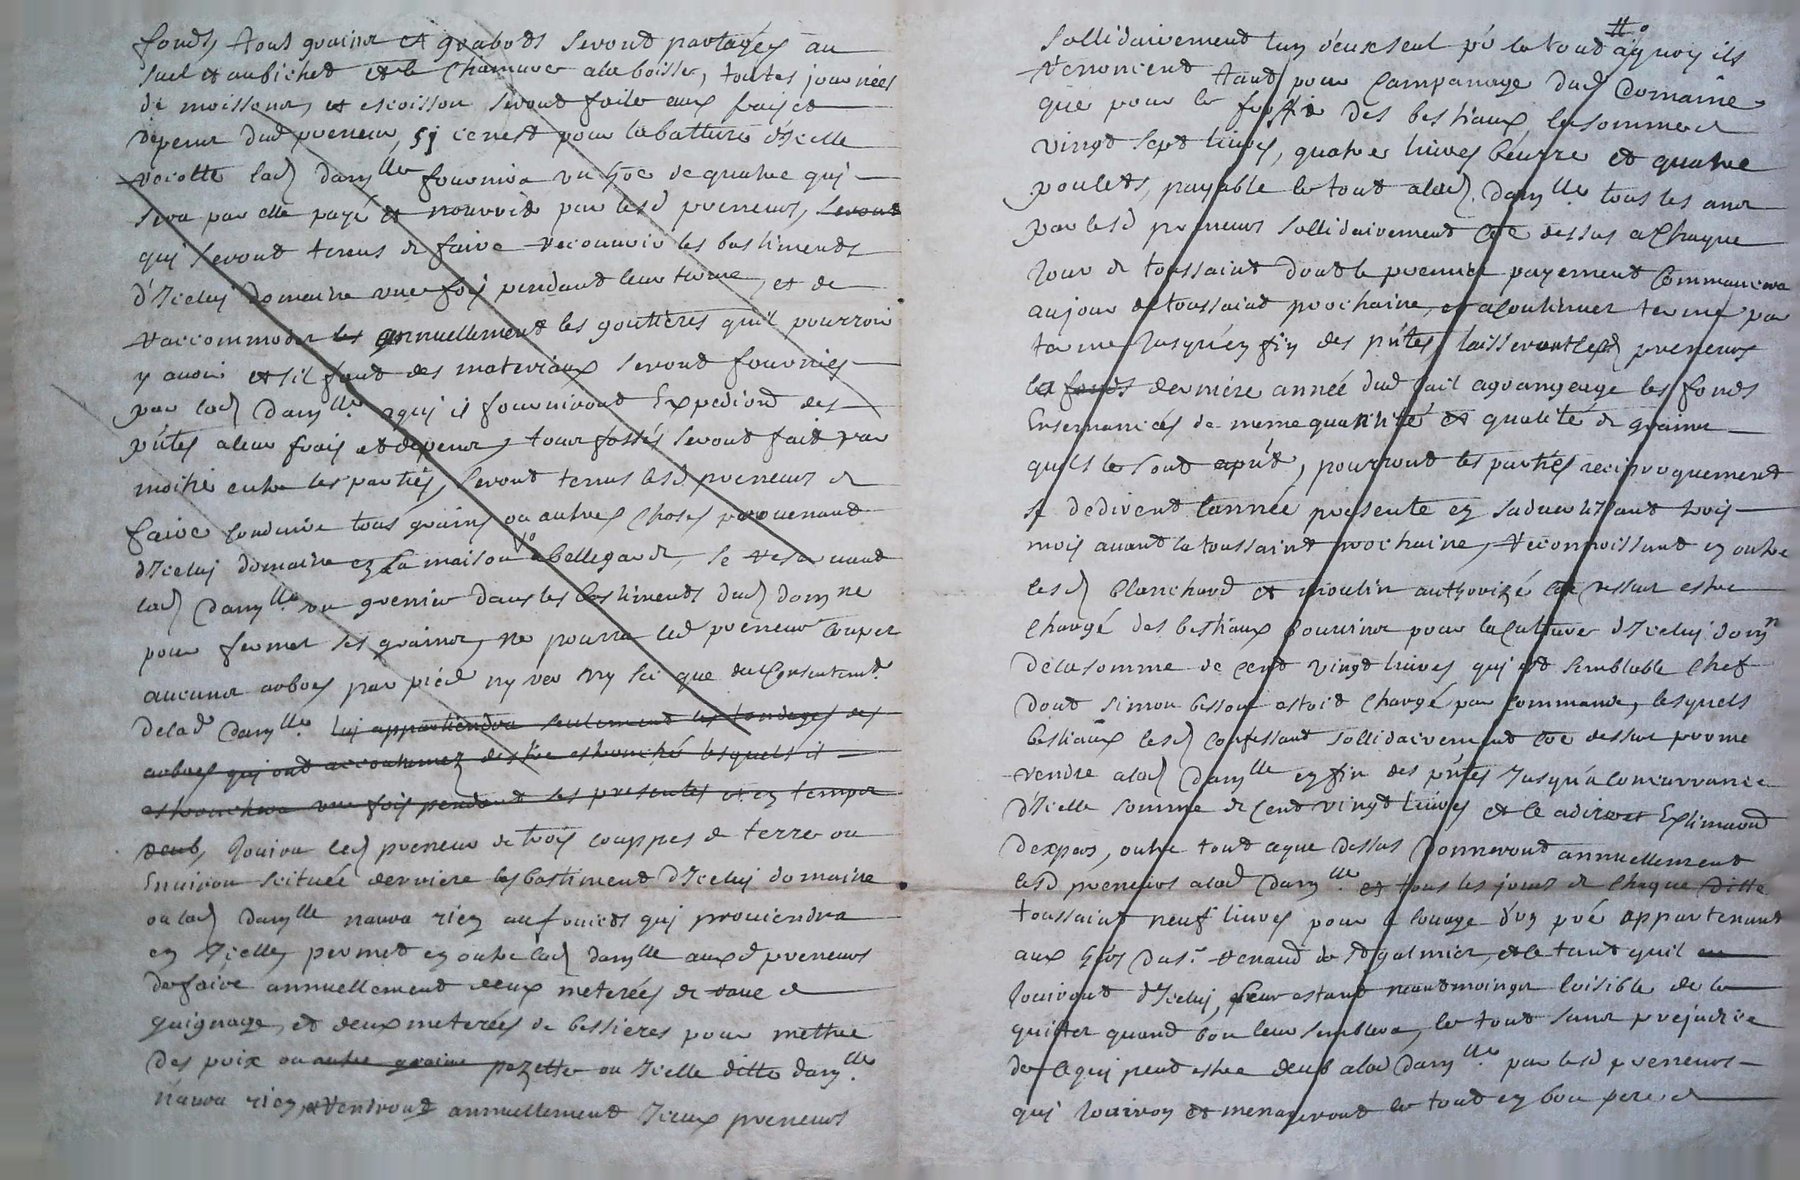 fonds, tous grains et grabots seront partagés au
sueil et au bichet et le chanvre a la boisse, toutes journées
de moissons, et escoisson seront faite aux frais et
depens dud preneur, si ce nest pour la batture d'icelle
recolte lad damlle fournira un de quatre qui
sera par elle payé et nourrid par lesd preneurs, seront
qui seront tenus de faire recouvrir les bastiments
d'Iceluy domaine une fois pendant leur terme, et de
raccommoder les annuellement les goutières quil pourroit
y avoir et sil faut des materiaux seront fournies
par lad damlle a qui il fourniront Expediond des
pntes a leur frais et depens, tour fossés seront fait par
moitié entre les parties, seront tenus lesd preneurs de
faire conduire tous grains ou autres choses provenant
d'Iceluy domaine en sa maison a bellegarde, se reservant
lad damlle un grenier dans les bastiments dud domne
pour fermer ses grains, ne pourra led preneur couper
aucuns arbres par pied ny ver ny sec que du consentemt
delad damlle luy appartiendra seulement les tondages des
arbres qui ont accoutumez destre esbranché lesquels il
esbranchera une fois pendant les presentes et en temps
deub, Jouira led preneur de trois couppes de terre ou
Environ scituée derriere les bastiment d'Iceluy domaine
ou lad damlle naura rien au fruicts qui proviendra
en Icelle, permet en outre lad damlle auxd preneurs
de faire annuellement deux meterées de rave et
guignage, et deux meterées de bessieres pour mettre
des poix ou autre graine pezette ou Icelle ditte damlle
n'aura rien, rendront annuellement Iceux preneurs
sollidairement lun d'eux seul pr le tout a quoy ils
renoncent tant pour lampanage dud domaine
que pour le des bestiaux la somme de
vingt sept livres, quatre livres beurre et quatre
poulets, payable le tout a lad damlle tous les ans
par lesd preneurs sollidairement co dessus a chaque
Jour de toussaint dont le premier payement commancera
au jour de toussaint prochaine, et a continuer terme par
terme Jusqu'en fin des pntes, laisseront lesd preneurs
les fonds derniere année dud bail a grangeage les fonds
Ensemancés de meme quantité et qualité de grains
quils le sont apnt, pourront les parties reciproquement
se dedirent lannée presente en sadvertissant trois
mois avant la toussaint prochaine, reconnoissant en outre
lesd Blanchard et moulin authorizé co dessus estre
chargé des bestiaux bouvins pour la culture d'Iceluy domn
de la somme de cent vingt livres qui est semblable chef
dont simon besson estoit chargé par commande, lesquels
bestiaux lesd confessant sollidairement co dessus promet
rendre a lad damlle en fin des pntes Jusqu'a concurrance
d'Icelle somme de cent vingt livres et ce a dire et Estimaõn
d'expers, outre tout ce que dessus donneront annuellement
lesd preneurs a lad damlle et tous les jours de chaque ditte
toussaint neuf livres pour le louage d'un pré appartenant
aux hers du sr renaud de st galmier, et le tant quil en
Jouiront d'Iceluy, leur estant neantmoings loisible de le
quitter quand bon leur semblera, le tout sans prejudice
de ce qui peut estre deub a lad damlle par lesd preneurs
qui Jouiron et menageront le tout en bon pere de